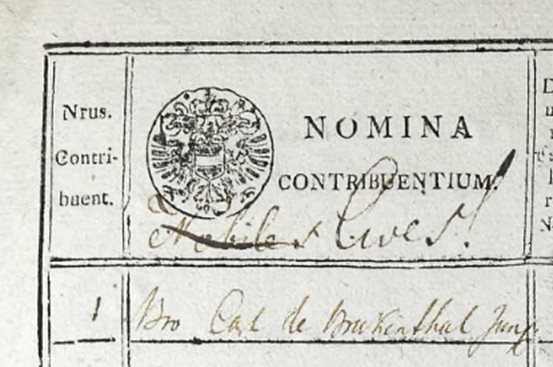 Nrus.
Contri-
buent.
NOMINA
CONTRIBUENTIUM.
Nobiles Cives!
1
Bro Carl de Brukenthal Jun